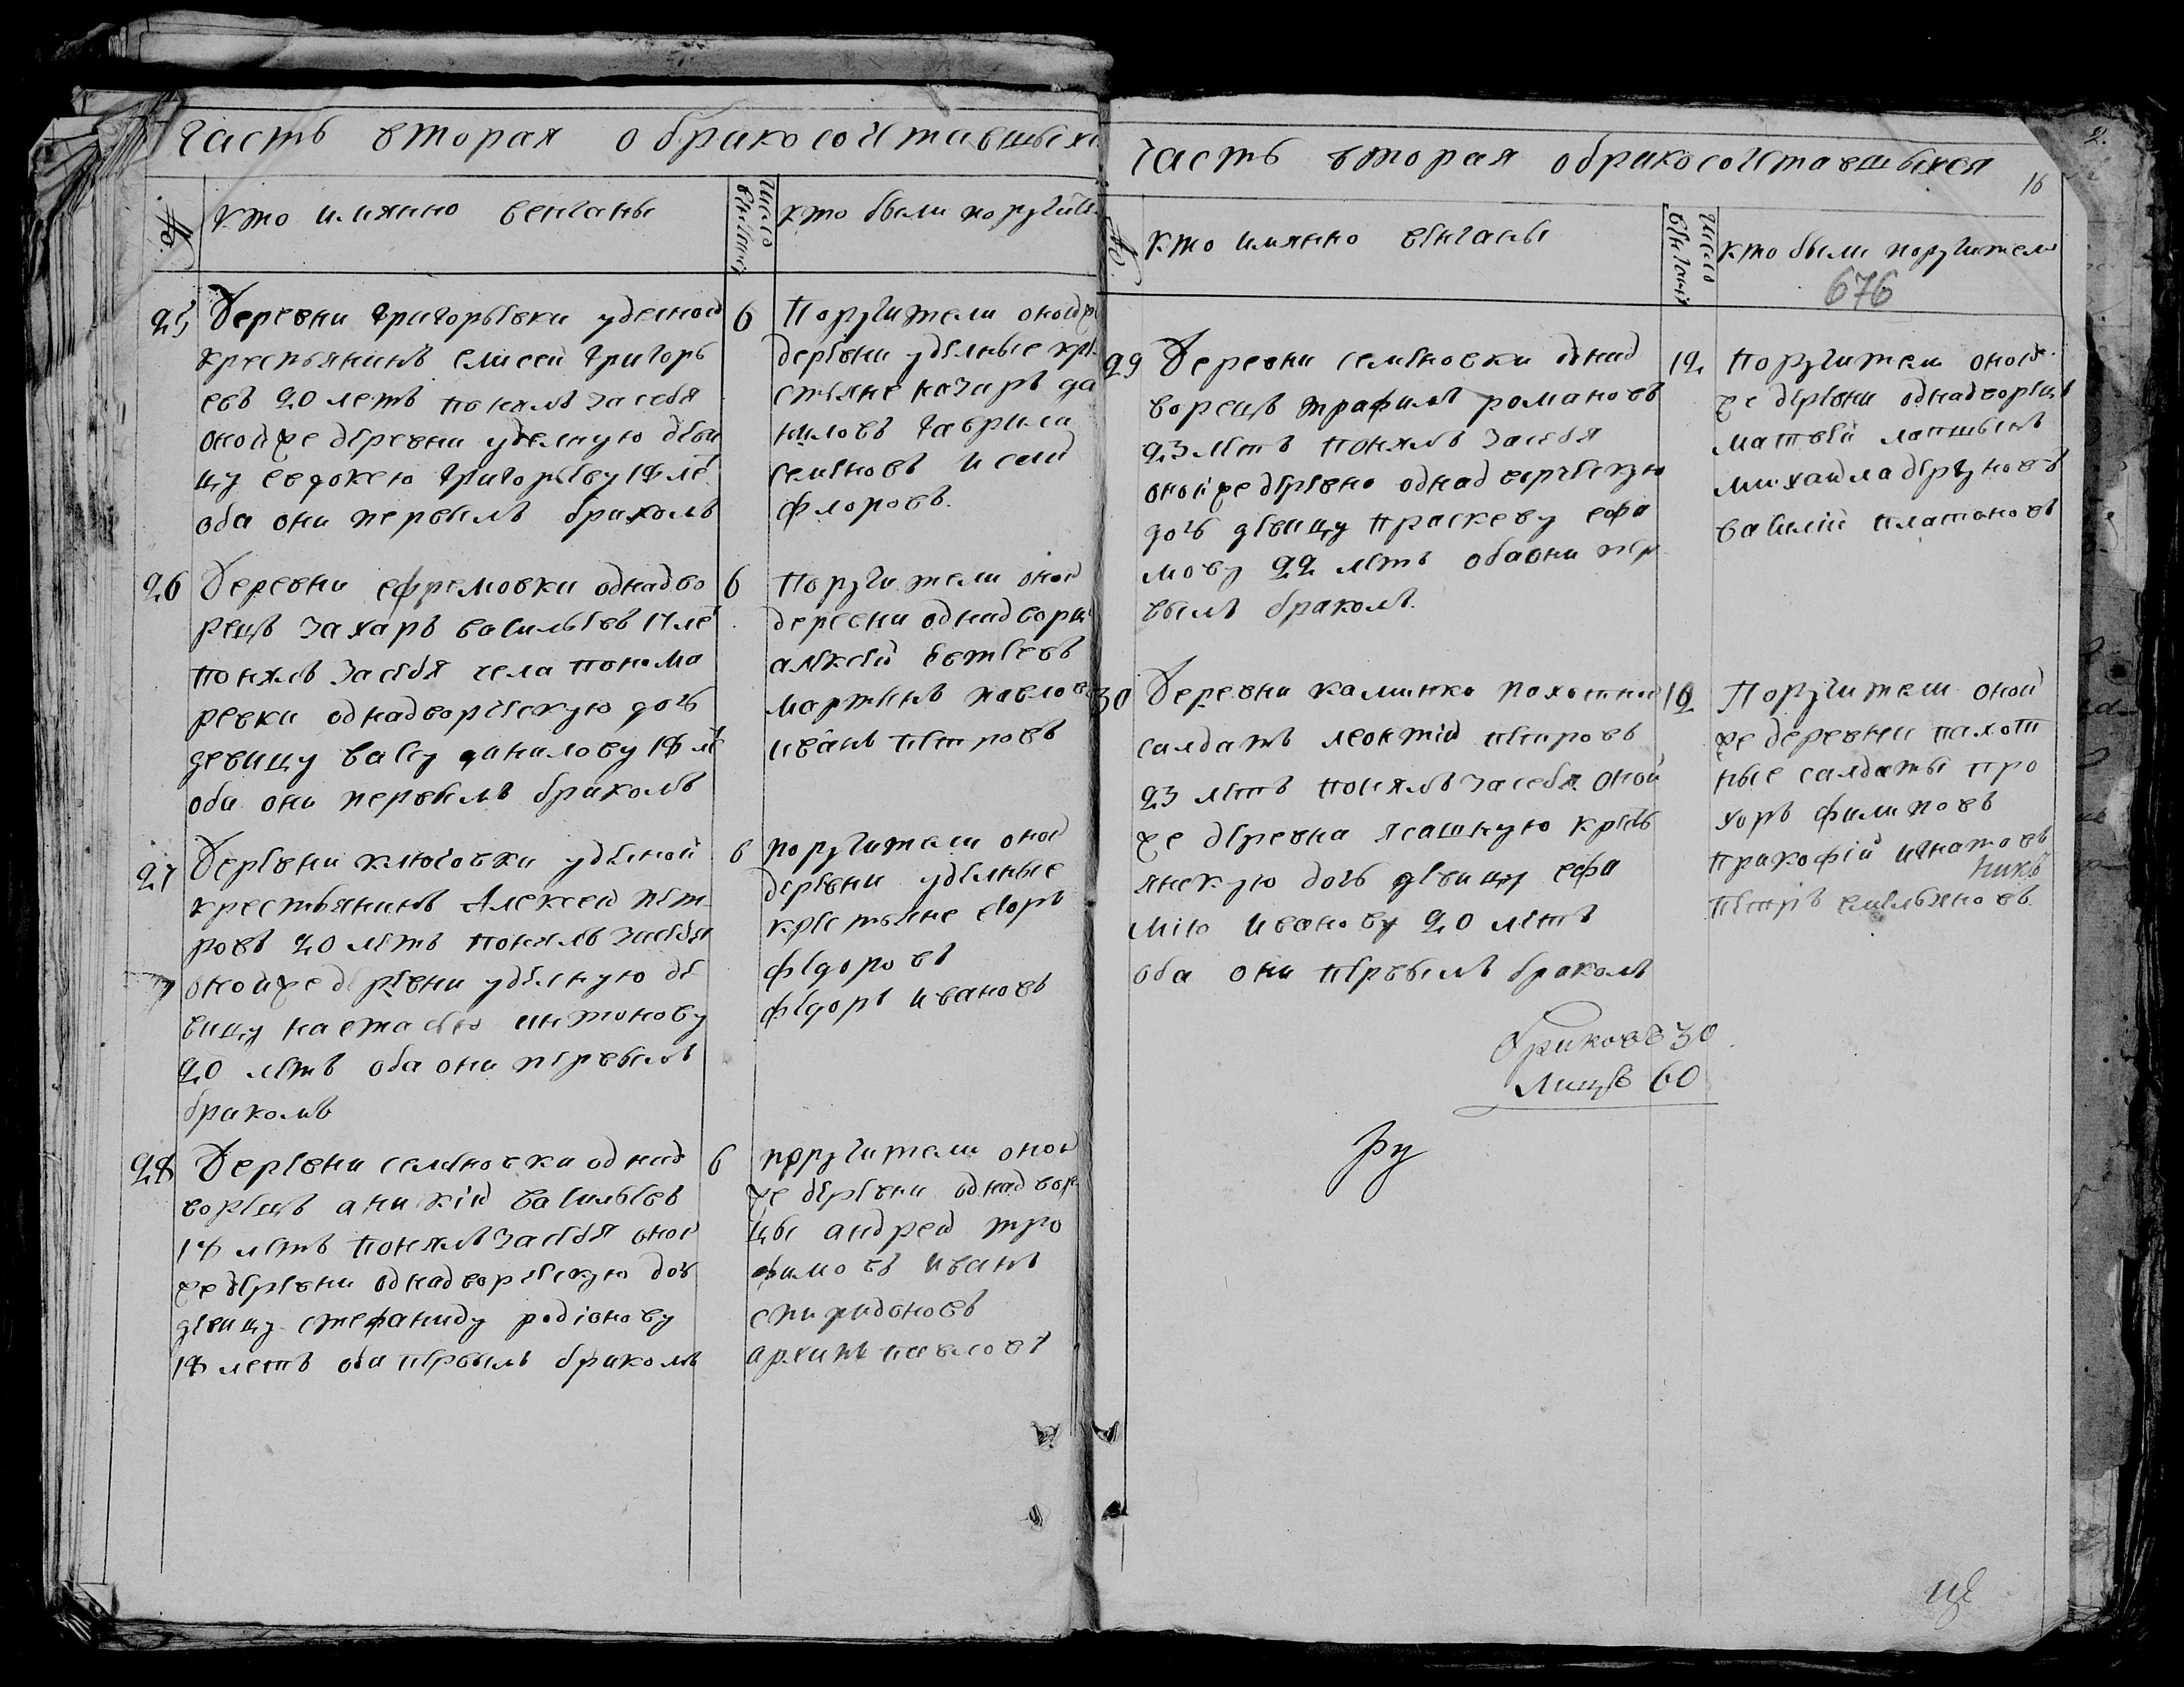 Часть вторая о бракосочетавшыхс
№
Кто имянно венчаны
Число венчаній
Кто были поручите
25 Деревни Григорьевки уделной
крестьянинъ елисей Григорь
евъ 20 летъ понялъ засебя
онойже деревни уделную деви
цу евдокею Григорьеву 18 ле.
оба они первымъ бракомъ
6
Поручители онойже
деревни уделные кре
стьяне назаръ да
ниловъ гаврила
семеновъ
флоровъ.
26 Деревни ефремовки однадво
рецъ Захаръ васильевъ 17 ле
понялъ засебя села понома
ревки однадворческую дочь
девицу васу данилову 18 ле
оба они первымъ бракомъ
6
Поручители оной
деревни однадворцы
алексей
мартинъ павловъ
иванъ петровъ
27 Деревни ключовки уделной
крестьянинъ Алексей пет
ровъ 20 летъ понялъ засебя
онойже деревни уделную де
вицу настасью антонову
20 летъ оба они первымъ
бракомъ
6
поручители оной
деревни уделные
крестьяне егоръ
федоровъ
федоръ ивановъ
28 Деревни семеновки однад
ворецъ аникій васильевъ
18 летъ понялъ засебя оной
же деревни однадворческую доч
девицу стефаниду родіонову
18 летъ оба первымъ бракомъ
6
поручители оной
же деревни однадвор
цы андрей тро
фимовъ иванъ
спиридоновъ
архипъ павловъ
Часть вторая обракосочетавшыхся
16
№
Кто имянно венчаны
Число венчаній
Кто были поручители
676
29 Деревни семеновки однад
ворецъ трафимъ романовъ
23 летъ понялъ засебя
онойже деревни однадворческую
дочь девицу праскеву ефи
мову 22 летъ обаони пер
вымъ бракомъ.
12
поручители оной
же деревни однадворцы
матвей лапшынъ
михайла
василій платоновъ
30 Деревни калинко пахотной
салдатъ леонтій петровъ
23 летъ понялъ засебя оной
же деревна ясашную кресть
янскую дочь девицу ефи
мію Иванову 20 летъ
оба они первымъ бракомъ
12
Поручители оной
же деревни пахот
ные салдаты про
хоръ филиповъ
пракофій игнатовъ
петръ емельяновъ.
Браковъ 30
Лицъ 60
ру